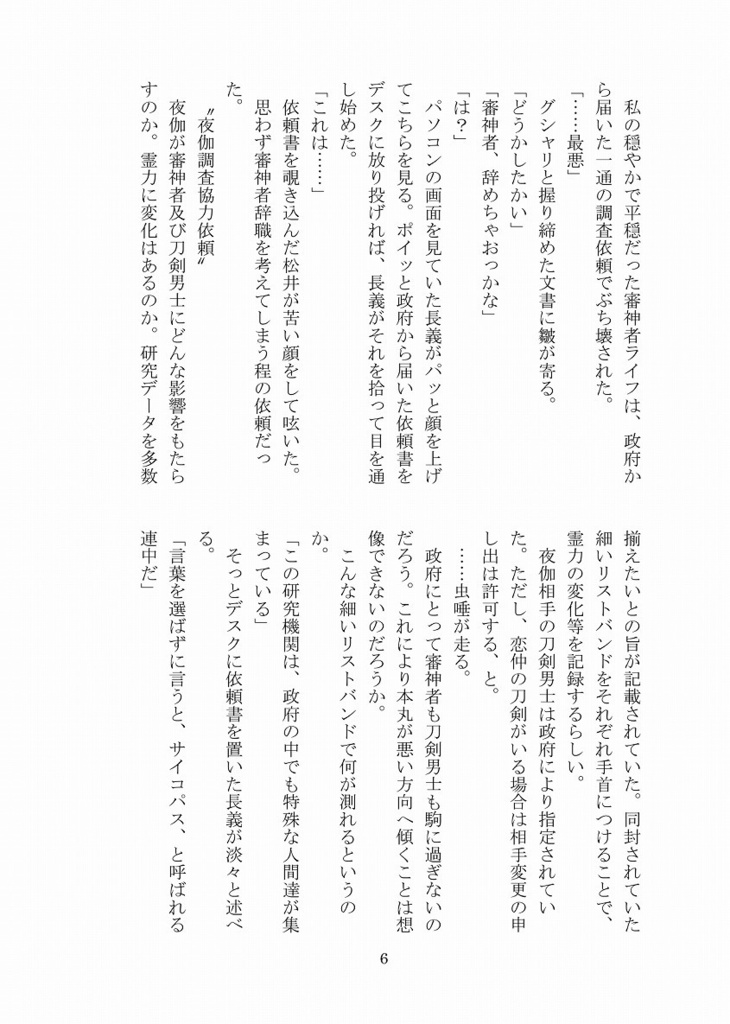 私の穏やかで平穏だった審神者ライフは、政府か
ら届いた一通の調査依頼でぶち壊された。
「……最悪」
　グシャリと握り締めた文書に皺が寄る。
「どうかしたかい」
「審神者、辞めちゃおっかな」
「は？」
　パソコンの画面を見ていた長義がパッと顔を上げ
てこちらを見る。ポイッと政府から届いた依頼書を
デスクに放り投げれば、長義がそれを拾って目を通
し始めた。
「これは……」
　依頼書を覗き込んだ松井が苦い顔をして呟いた。
　思わず審神者辞職を考えてしまう程の依頼だっ
た。
　〝夜伽調査協力依頼〟
　夜伽が審神者及び刀剣男士にどんな影響をもたら
すのか。霊力に変化はあるのか。研究データを多数
揃えたいとの旨が記載されていた。同封されていた
細いリストバンドをそれぞれ手首につけることで、
霊力の変化等を記録するらしい。
　夜伽相手の刀剣男士は政府により指定されてい
た。ただし、恋仲の刀剣がいる場合は相手変更の申
し出は許可する、と。
　……虫唾が走る。
　政府にとって審神者も刀剣男士も駒に過ぎないの
だろう。これにより本丸が悪い方向へ傾くことは想
像できないのだろうか。
　こんな細いリストバンドで何が測れるというの
か。
「この研究機関は、政府の中でも特殊な人間達が集
まっている」
　そっとデスクに依頼書を置いた長義が淡々と述べ
る。
「言葉を選ばずに言うと、サイコパス、と呼ばれる
連中だ」
6